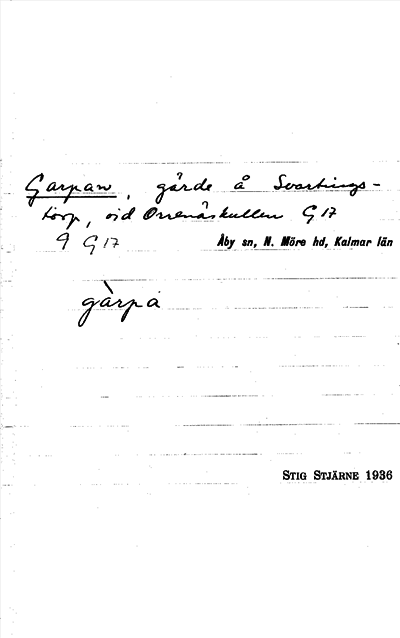 Garpaw, gärde å Svartings-
torp, vid Orrenäskullen G 17
9 G 17 Åby sn, N. Möre hd, Kalmar län
gàrpa
STIG STJÄRNE 1936